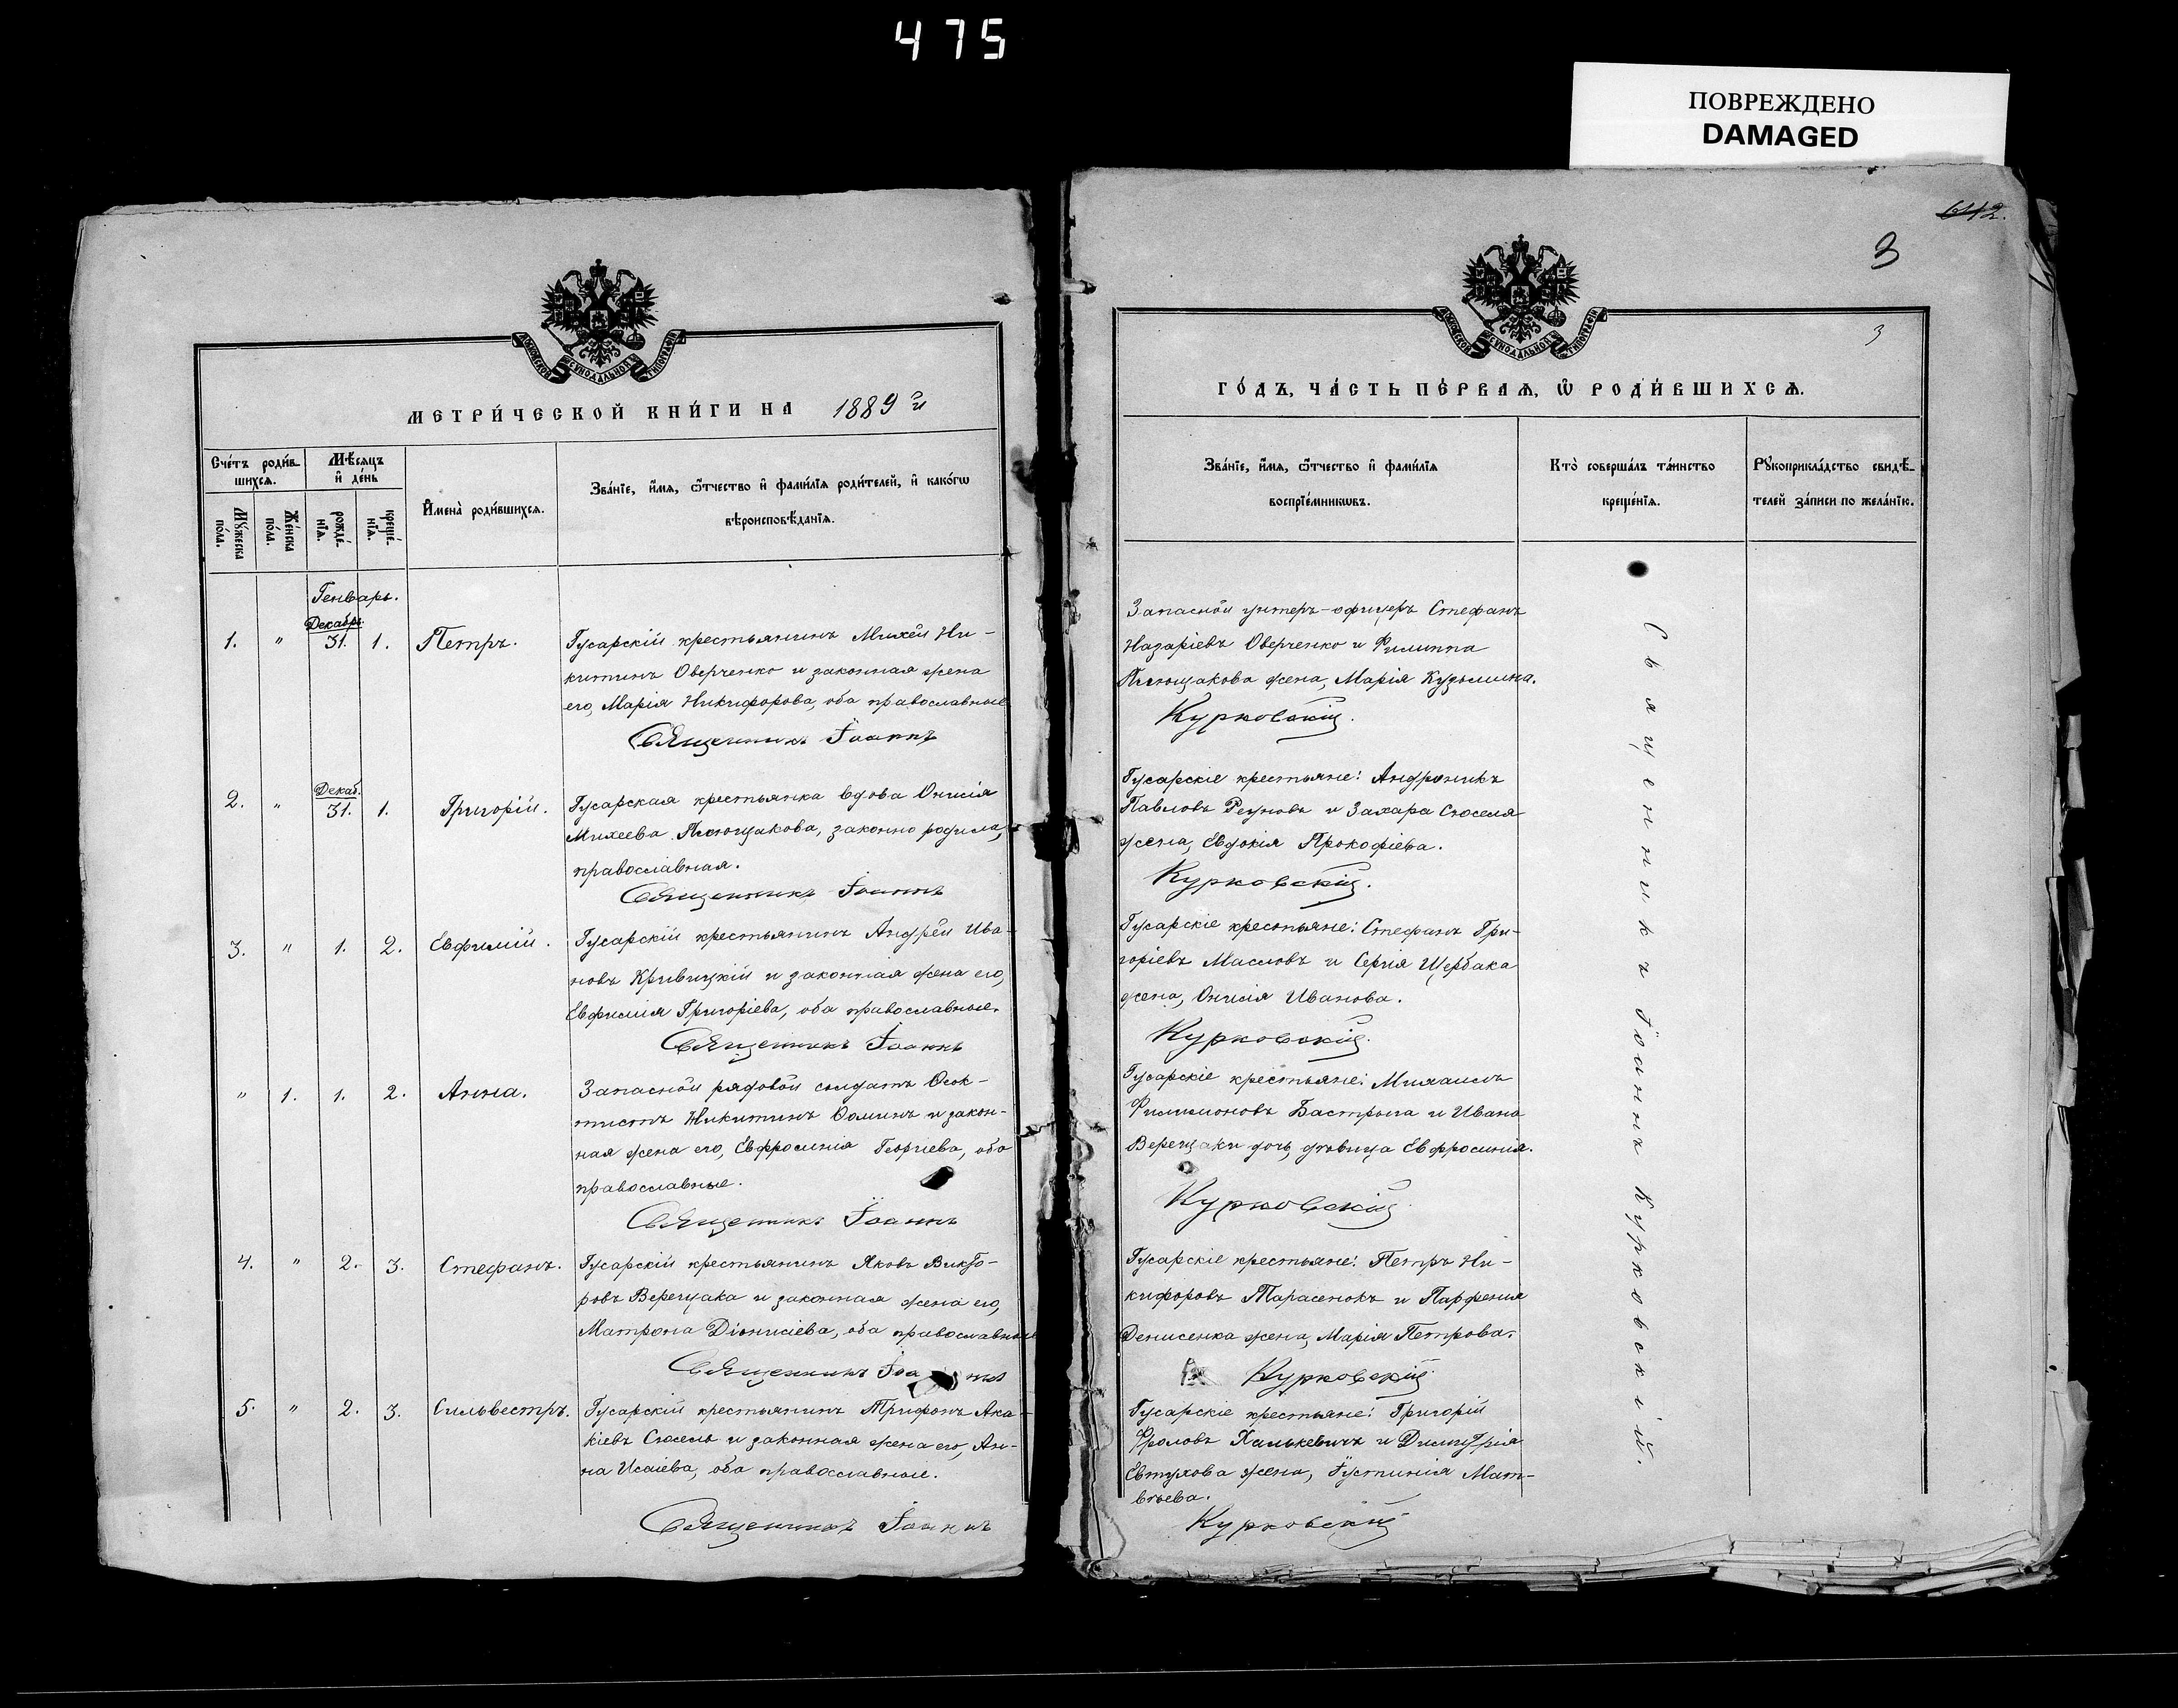 475
ПОВРЕЖДЕНО
DAMAGED
МЕТРИ́ЧЕСКОЙ КНИ́ГИ НА 1889й
Сче́тъ роди́в-
шихсѧ.
Мѣ́сяцъ
и҆ де́нь
Мꙋ́жеска
по́ла.
Же́нска
по́ла.
рожде́-
нїѧ.
креще́-
нїѧ.
И҆мена̀ роди́вшихсѧ.
Зва́нїе, и҆́мѧ, ѻ҆́тчество и҆ фами́лїѧ роди́телей, и҆ како́гѡ
вѣроисповѣ́данїѧ.
Генварь.
1. " Декабрь 31. 1. Петръ.
Гусарскій крестьянинъ Михей Ни-
китинъ Оверченко и законная жена
его, Марія Никифорова, оба православные
Священникъ Іоаннъ
2. " Декаб. 31. 1. Григорій.
Гусарская крестьянка вдова Онисія
Михеева Плющакова, законно родила,
православная.
Священникъ Іоаннъ
3. " 1. 2. Евфимій.
Гусарскій крестьянинъ Андрей Ива-
новъ Кривицкій и законная жена его,
Евфимія Григоріева, оба православные.
Священникъ Іоаннъ
" 1. 1. 2. Анна.
Запасной рядовой солдатъ Ѳеок-
тистъ Никитинъ Ѳоминъ и закон-
ная жена его, Евфросинія Георгіева, оба
православные.
Священникъ Іоаннъ
4. " 2. 3. Стефанъ.
Гусарскій крестьянинъ Яковъ Викто-
ровъ Верещака и законная жена его,
Матрона Діонисіева, оба православные
Священникъ Іоаннъ
5. " 2. 3. Сильвестръ.
Гусарскій крестьянинъ Трифонъ Ака-
кіевъ Сюсель и законная жена его, Ан-
на Исаіева, оба православные.
Священникъ Іоаннъ
642.
3
3
ГО́ДЪ, ЧА́СТЬ ПЕ́РВАѦ, Ѡ҆ РОДИ́ВШИХСѦ.
Зва́нїе, и҆́мѧ, ѻ҆́тчество и҆ фами́лїѧ
воспрїе́мникѡвъ.
Кто̀ соверша́лъ та́инство
креще́нїѧ.
Рꙋкоприкла́дство свидѣ́-
телей за́писи по жела́нїю.
Запасной унтеръ-офицеръ Стефанъ
Назаріевъ Оверченко и Филиппа
Плющакова жена, Марія Кузьмина.
Курковскій.
Гусарскіе крестьяне: Андроникъ
Павловъ Реуновъ и Захара Сюселя
жена, Евдокія Прокофіева.
Курковскій.
Гусарскіе крестьяне: Стефанъ Гри-
горіевъ Масловъ и Сергія Щербака
жена, Онисія Иванова.
Курковскій.
Гусарскіе крестьяне: Михаилъ
Филимоновъ Бастрыга и Ивана
Верещаки дочь, дѣвица Евфросинія.
Курковскій
Гусарскіе крестьяне: Петръ Ни-
кифоровъ Тарасенокъ и Парфенія
Денисенка жена, Марія Петрова.
Курковскій
Гусарскіе крестьяне: Григорій
Фроловъ Халькевичъ и Димитрія
Евтухова жена, Іустинія Мат-
вѣева.
Курковскій
Священникъ Іоаннъ Курковскій.